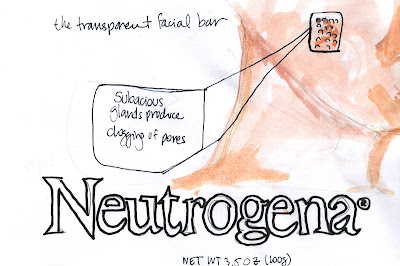 the transparent facial bar
Subacious
glands produce
clogging of pores
Neutrogena®
NET WT 3.5 OZ (100g)